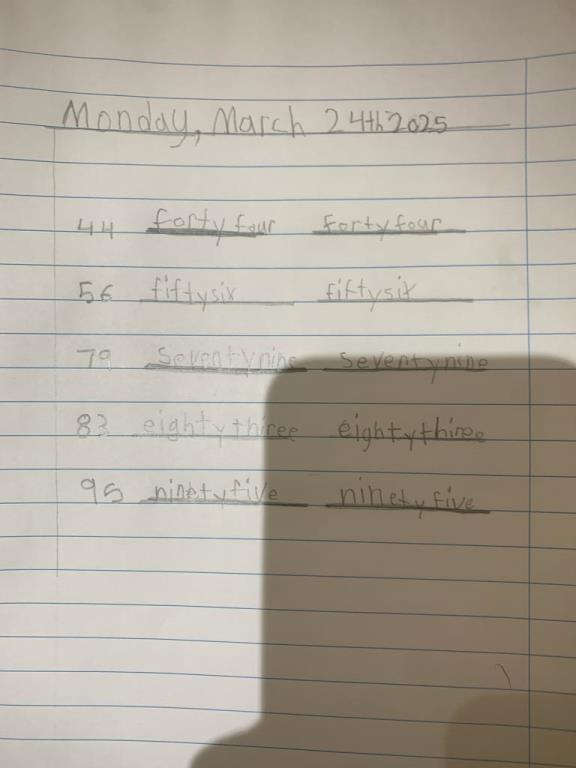 Monday, March 24th 2025
44 forty four forty four
56 fiftysix fiftysix
79 seventynine seventynine
83 eightythree eightythree
95 ninetyfive ninetyfive